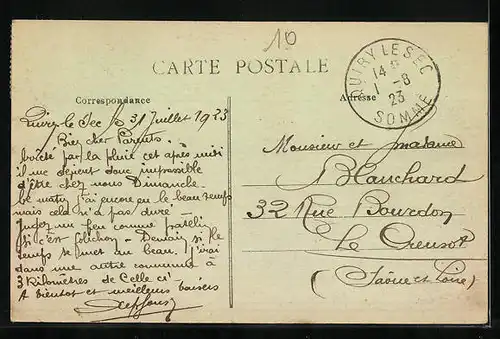 10
CARTE POSTALE
Correspondance
Adresse
QUIRY LE SEC
14
1 -8
23
SOMME
Quiry-le-Sec le 31 Juillet 1923
Bien cher Parents.
par la pluie cet après midi
il me devient donc impossible
d'être chez nous Dimanche.
Ce matin j'ai encore eu le beau temps
mais cela n'a pas duré
Jugez un peu comme
si c'est folichon - Demain si le
temps se met au beau. J'irai
dans une autre commune à
3 Kilomètres de Celle ci
A bientôt et meilleurs baisers
Monsieur et madame
Blanchard
32 Rue Bourdon
Le Creusot
(Saône et Loire)